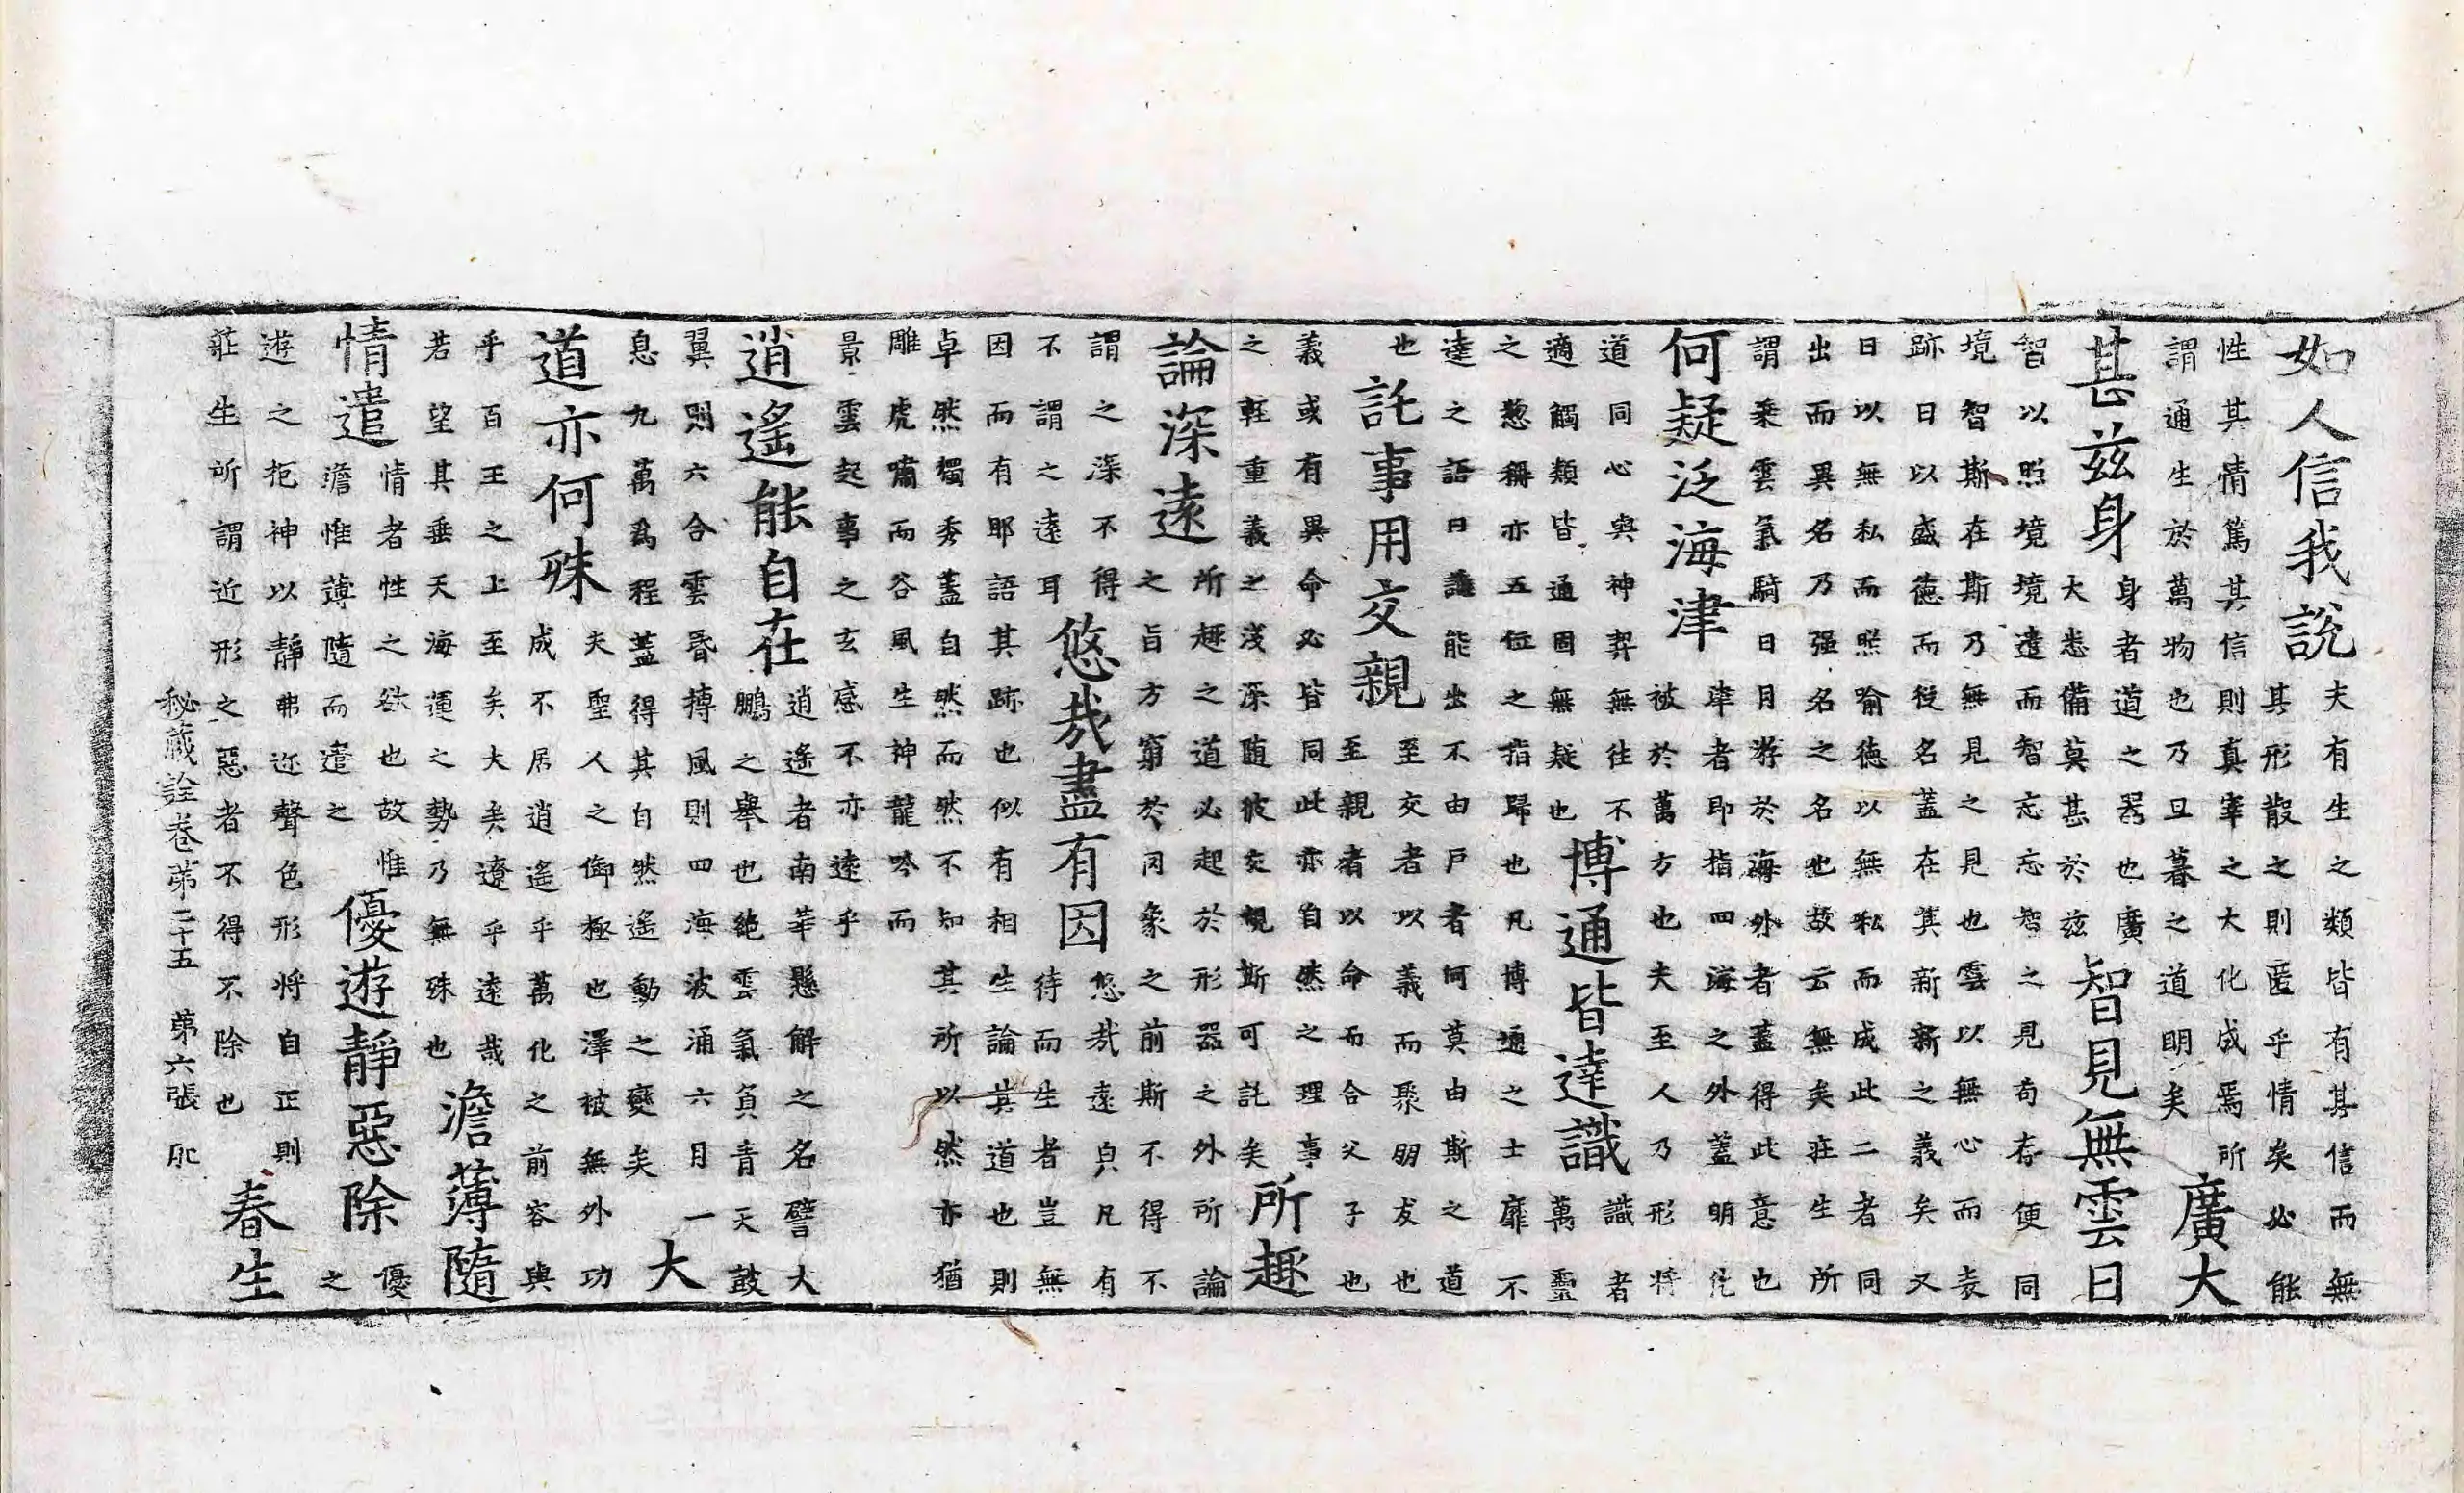 如人信我說夫有生之類皆有其信而無
其形散之則匿乎情矣必能
性其情篤其信則真宰之大化成焉所
謂通生於萬物也乃旦暮之道明矣廣大
甚兹身身者道之器也廣
大悉備莫甚於兹智見無雲日
智以照境境遣而智忘忘智之見旬存便同
境智斯在斯乃無見之見也雲以無心而表
跡日以盛德而後名蓋在其新新之義矣又
日以無私而照喻德以無私而成此二者同
出而異名乃强名之名也故云無矣莊生所
謂乘雲氣騎日月游於海外者蓋得此意也
何疑泛海津津者即指四海之外蓋明化
被於萬方也夫至人乃形將
道同心與神契無往不
適觸類皆通固無疑也博通皆達識識者
萬靈
之惣稱亦五位之指歸也凡博通之士靡不
達之語曰誰能出不由戶者何莫由斯之道
也託事用交親至交者以義而聚朋友也
至親者以命而合父子也
義或有異命必皆同此亦自然之理事
之輕重義之淺深隨彼交親斯可託矣所趣
論深遠所趣之道必起於形器之外所論
之旨方窮於罔象之前斯不得不
謂之深不得
不謂之遠耳悠哉盡有因悠哉遠皃凡有
待而生者豈無
因而有耶語其跡也似有相生論其道也則
卓然獨秀蓋自然而然不知其所以然亦猶
雕虎嘯而谷風生神龍吟而
景雲起事之玄感不亦遠乎
逍遙能自在逍遙者南華懸解之名譬大
鵬之舉也絕雲氣負青天鼓
翼則六合雲昏搏風則四海波涌六月一
息九萬爲程蓋得其自然遙動之變矣大
道亦何殊夫聖人之御極也澤被無外功
成不居逍遙乎萬化之前容與
乎百王之上至矣大矣遼乎遠哉
若望其垂天海運之勢乃無殊也澹薄隨
情遣情者性之欲也故惟
澹惟薄隨而遣之優遊靜惡除優
之
遊之扼神以靜弗迩聲色形將自正則
莊生所謂近形之惡者不得不除也春生
秘藏詮卷第二十五 第六張